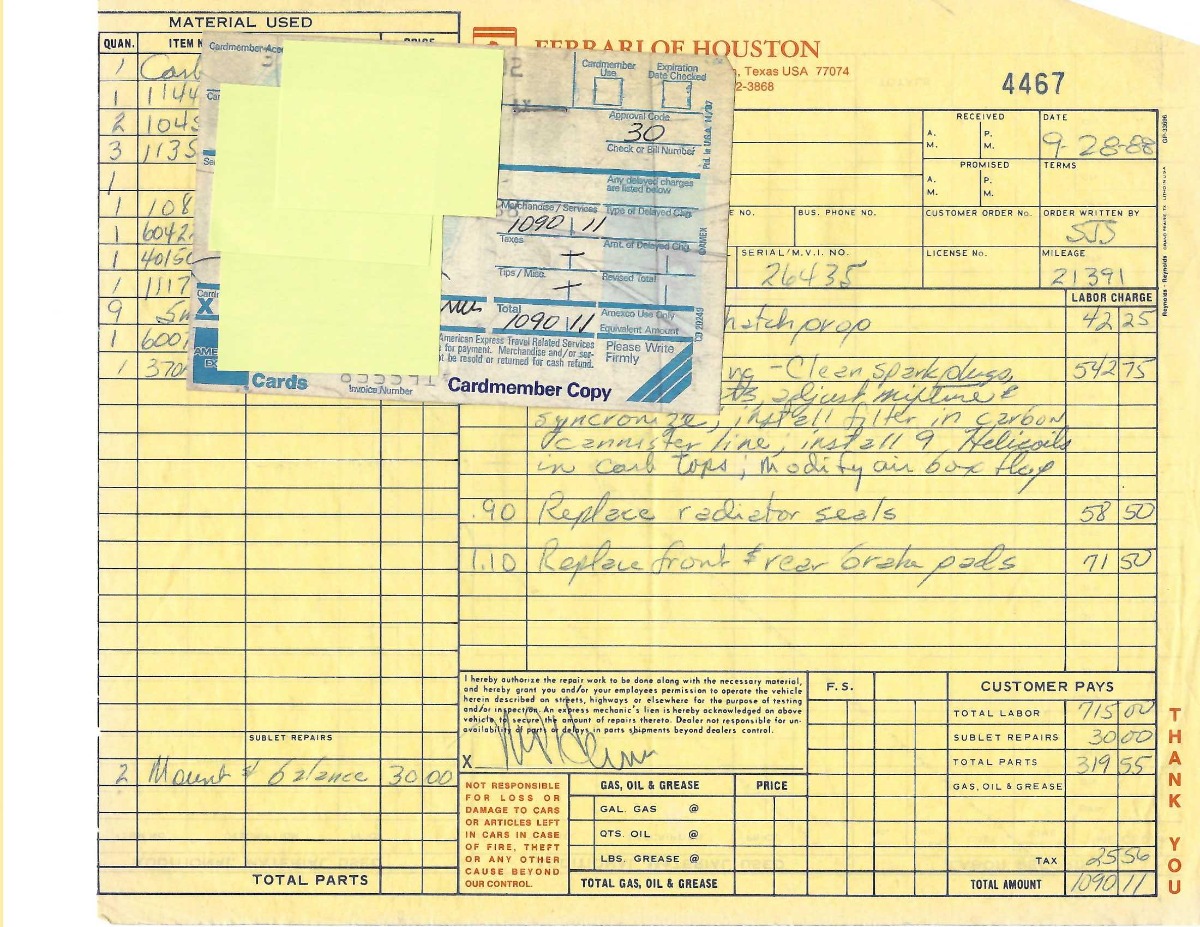 MATERIAL USED
QUAN. ITEM PRICE
1 Carb
1 1144
2 1045
3 1135
1
1 108
1 6042
1 4015
1 1117
9
1 600
1 370
SUBLET REPAIRS
2 Mount & balance 30 00
TOTAL PARTS
Cardmember
Cardmember Use
Expiration Date Checked
Approval Code
30
Check or Bill Number
Any delayed charges are listed below
Merchandise / Services
1090 11
Type of Delayed Chg
Taxes
Amt. of Delayed Chg
Tips / Misc.
Revised Total
Total
1090 11
Amexco Use Only
Equivalent Amount
X
American Express Travel Related Services
for payment. Merchandise and/or ser-
be resold or returned for cash refund.
Please Write Firmly
Cards
Invoice Number
Cardmember Copy
©AMEX
CD 20249
FERRARI OF HOUSTON
, Texas USA 77074
2-3868
4467
RECEIVED
A. M. P. M.
DATE
9-28-88
PROMISED
A. M. P. M.
TERMS
E NO.
BUS. PHONE NO.
CUSTOMER ORDER No.
ORDER WRITTEN BY
SJS
SERIAL/M.V.I. NO.
26435
LICENSE No.
MILEAGE
21391
LABOR CHARGE
hatch prop 42 25
- Clean spark plugs, 542 75
adjust mixture &
syncronize; install filter in carbon
cannister line; install 9 Helicoils
in carb tops; modify air box flap
.90 Replace radiator seals 58 50
1.10 Replace front & rear brake pads 71 50
I hereby authorize the repair work to be done along with the necessary material,
and hereby grant you and/or your employees permission to operate the vehicle
herein described on streets, highways or elsewhere for the purpose of testing
and/or inspection. An express mechanic's lien is hereby acknowledged on above
vehicle to secure the amount of repairs thereto. Dealer not responsible for un-
availability of parts or delays in parts shipments beyond dealers control.
X
NOT RESPONSIBLE
FOR LOSS OR
DAMAGE TO CARS
OR ARTICLES LEFT
IN CARS IN CASE
OF FIRE, THEFT
OR ANY OTHER
CAUSE BEYOND
OUR CONTROL.
GAS, OIL & GREASE PRICE
GAL. GAS @
QTS. OIL @
LBS. GREASE @
TOTAL GAS, OIL & GREASE
F.S.
CUSTOMER PAYS
TOTAL LABOR 715 00
SUBLET REPAIRS 30 00
TOTAL PARTS 319 55
GAS, OIL & GREASE
TAX 25 56
TOTAL AMOUNT 1090 11
THANK YOU